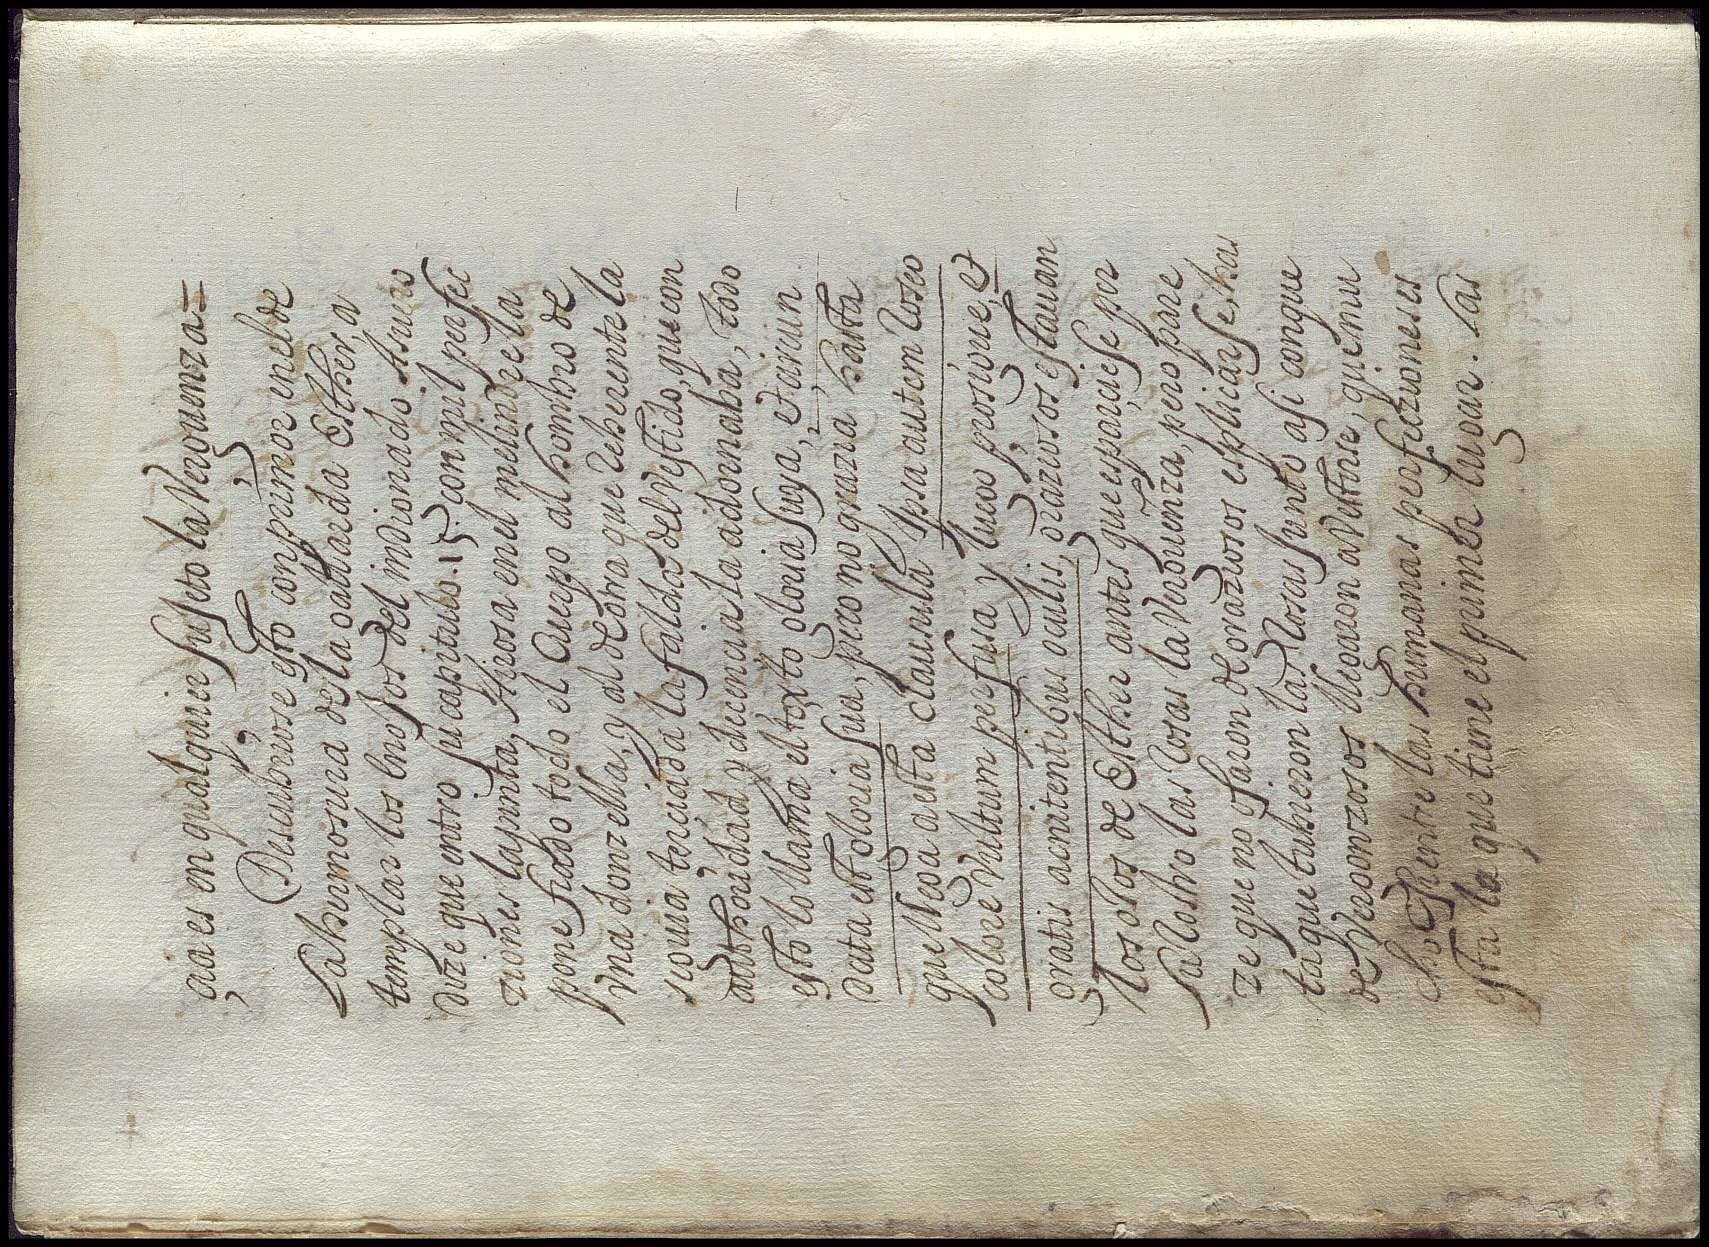 cia es en qualquier sujeto la Verguenza=
Descubriose esto con primor en el de
La hermosura de la gallarda Esther, a
templar los enojos del indignado Asuero
dize que entro su capitulo. 15. con mil perfec
ziones la pinta, Airosa en el melindre la
pone fiado todo el Cuerpo al hombro de
vna donzella, y al de otra que reberente la
seguia terciada la falda del vestido, que con
authoridad y decencia la adornaba, todo
esto lo llama el texto gloria suya, Etariun
data est gloria sua, pero no grazia hasta
que llega a esta clausula Ipsa autem roseo
colore Vultum perfusa y luego prosigue, et
gratis acnitentibus oculis, grazios os estauan
los ojos de Esther antes que esparciese por
su rostro las rosas la Verguenza, pero pare
ze que no osaron de graziosos esplicarse, has
ta que tubieron las rosas junto asi conque
de Vergonzosos llegaron a vestirse, quien du
cho que entre las humanas perfeziones es
esta la que tiene el primer lugar. Las